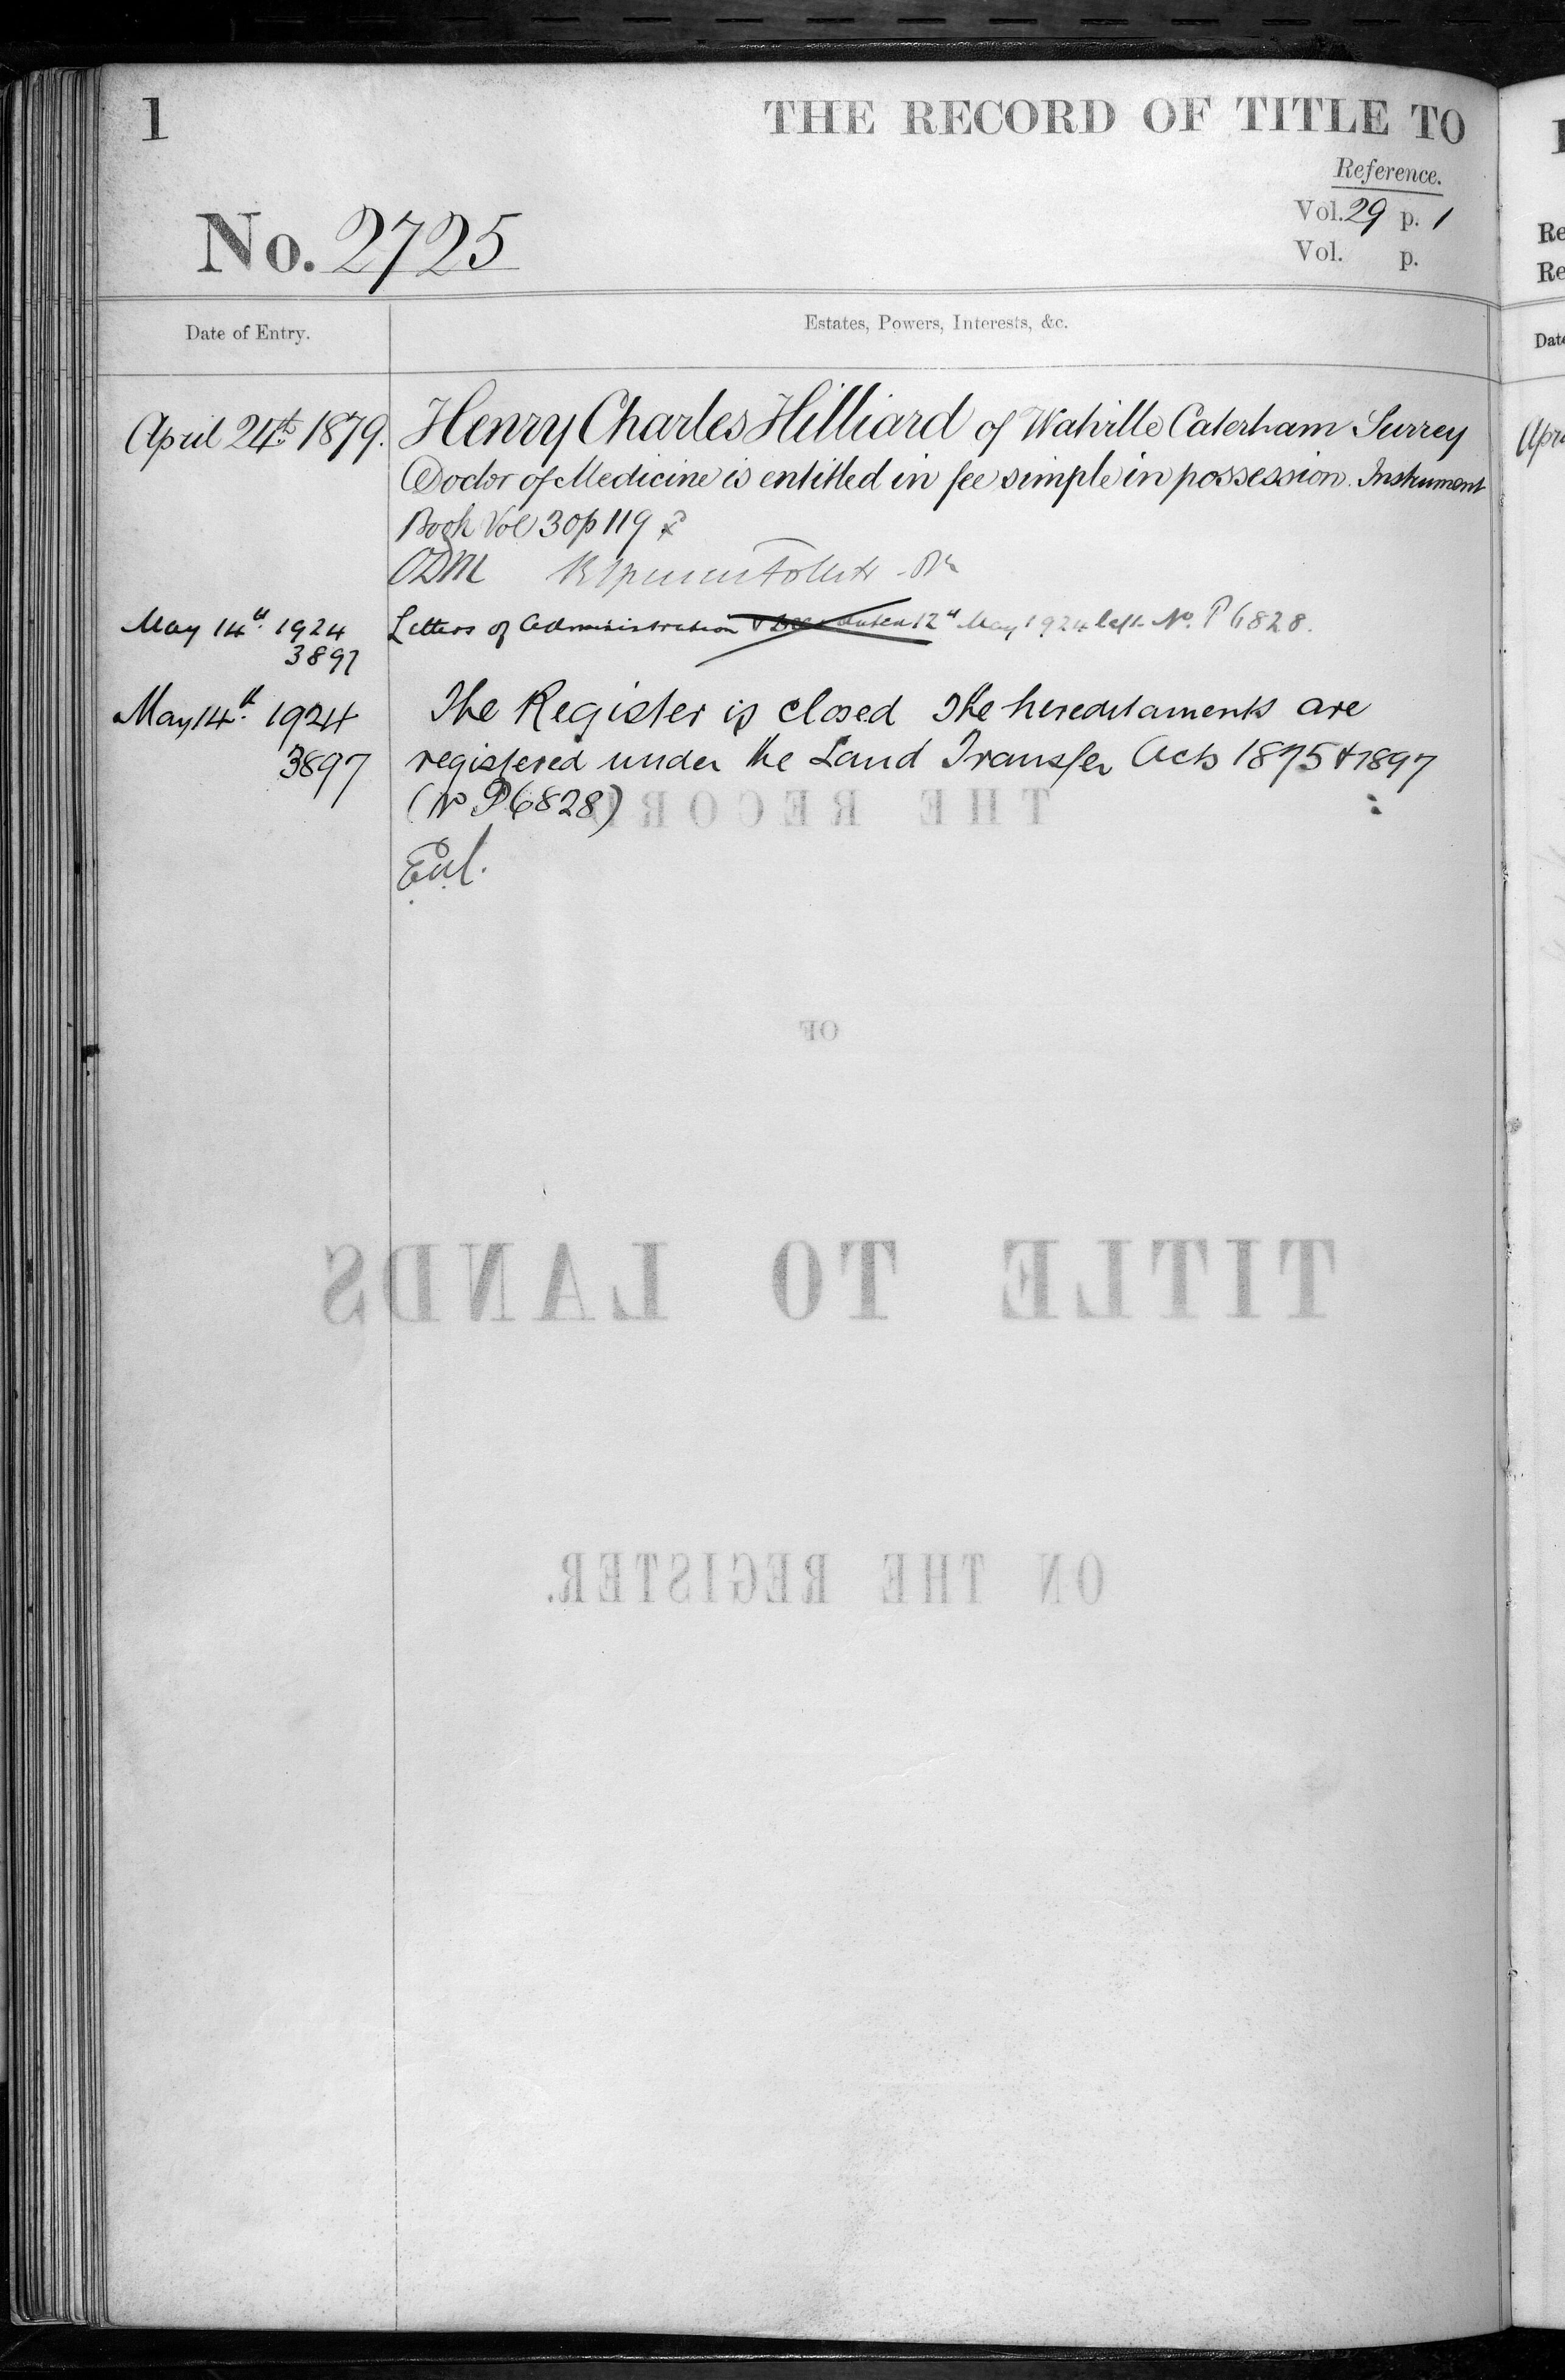 1
THE RECORD OF TITLE TO
Reference.
Vol. 29 p. 1
Vol. p.
No. 2725
Date of Entry.
Estates, Powers, Interests, &c.
April 24th 1879.
Henry Charles Hilliard of Caterham Surrey
Doctor of Medicine is entitled in fee simple in possession. Instrument
Book Vol 30 p 119
May 14th 1924
3897
Letters of Administration 12th May 1924 left. No. P 6828.
May 14th 1924
3897
The Register is closed The hereditaments are
registered under the Land Transfer Acts 1875 & 1897
(No P 6828)
THE RECORD
OF
TITLE TO LANDS
ON THE REGISTER.
Re
Re
Date
Apri